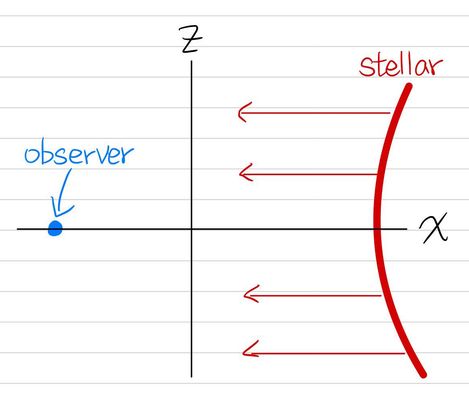 Z
stellar
observer
x